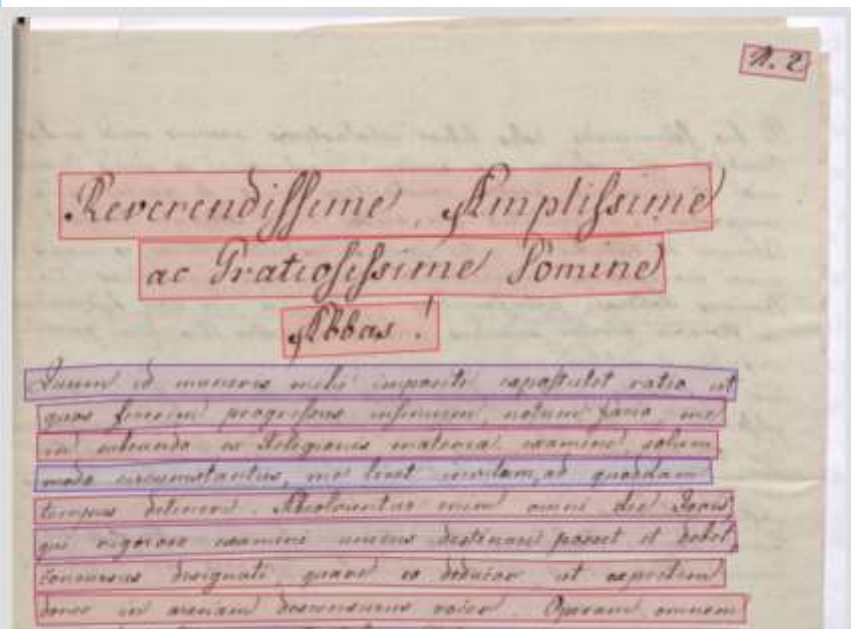 N. 2
Reverendissime, Amplissime
ac Gratiosissime Domine
Abbas!
Quum id muneris mihi impositi expostulet ratio, ut
quos fecerim progressus notum facio, me
in ex Religionis materia examine, solum
modo circumstantias, me licet invitam, ad quoddam
tempus detinere. Absolventur enim omni die
qui rigoroso examini destinari possit et debet
concursus designati, quare eo deducor ut expectem
donec in arenam descensurus Operam, omnem